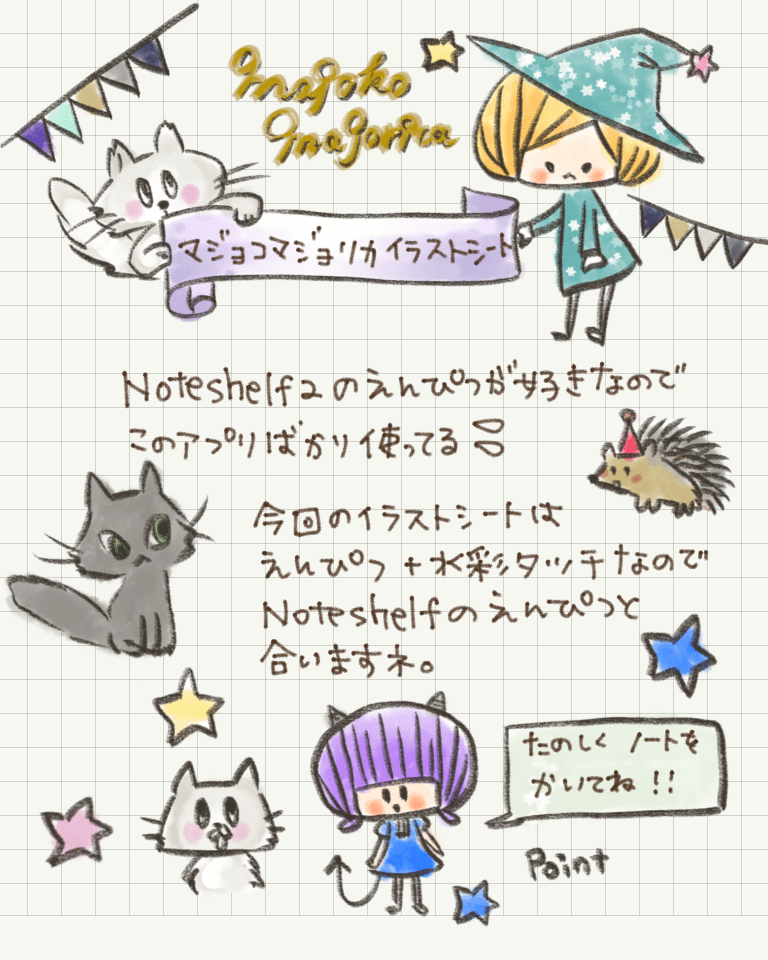 majoko
majorica
マジョコマジョリカイラストシート
Noteshelf2のえんぴつが好きなので
このアプリばかり使ってる
今回のイラストシートは
えんぴつ+水彩タッチなので
Noteshelfのえんぴつと
合いますネ。
たのしく ノートを
かいてね!!
Point